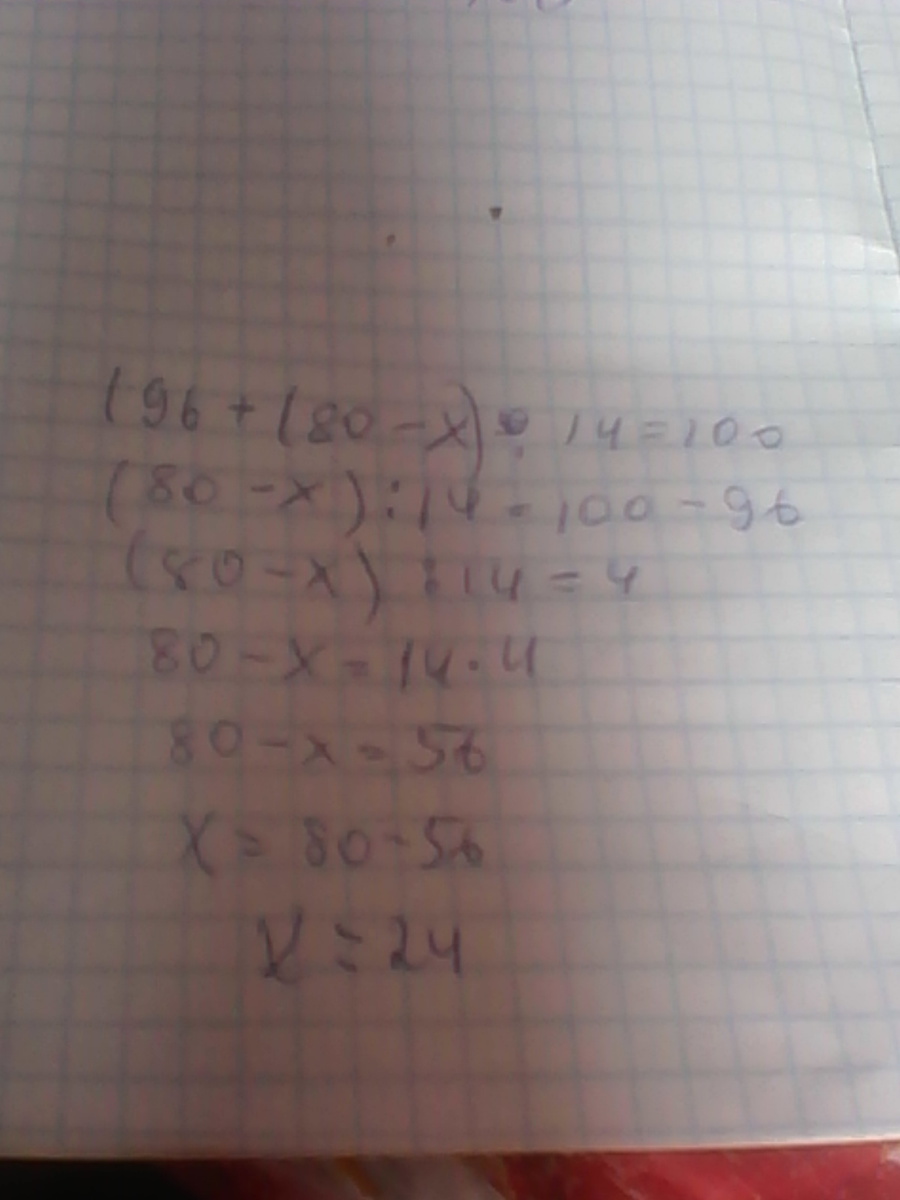 (96+(80-x) : 14=100
(80-x):14=100-96
(80-x) :14=4
80-x=14·4
80-x=56
x=80-56
x=24